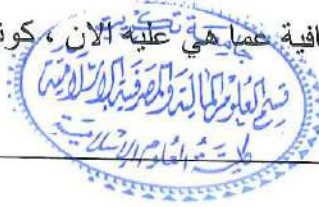 افية عما هي عليه الآن ، كون
جامعة تكريت
قسم العلوم المالية والمصرفية الإسلامية
كلية العلوم الإسلامية